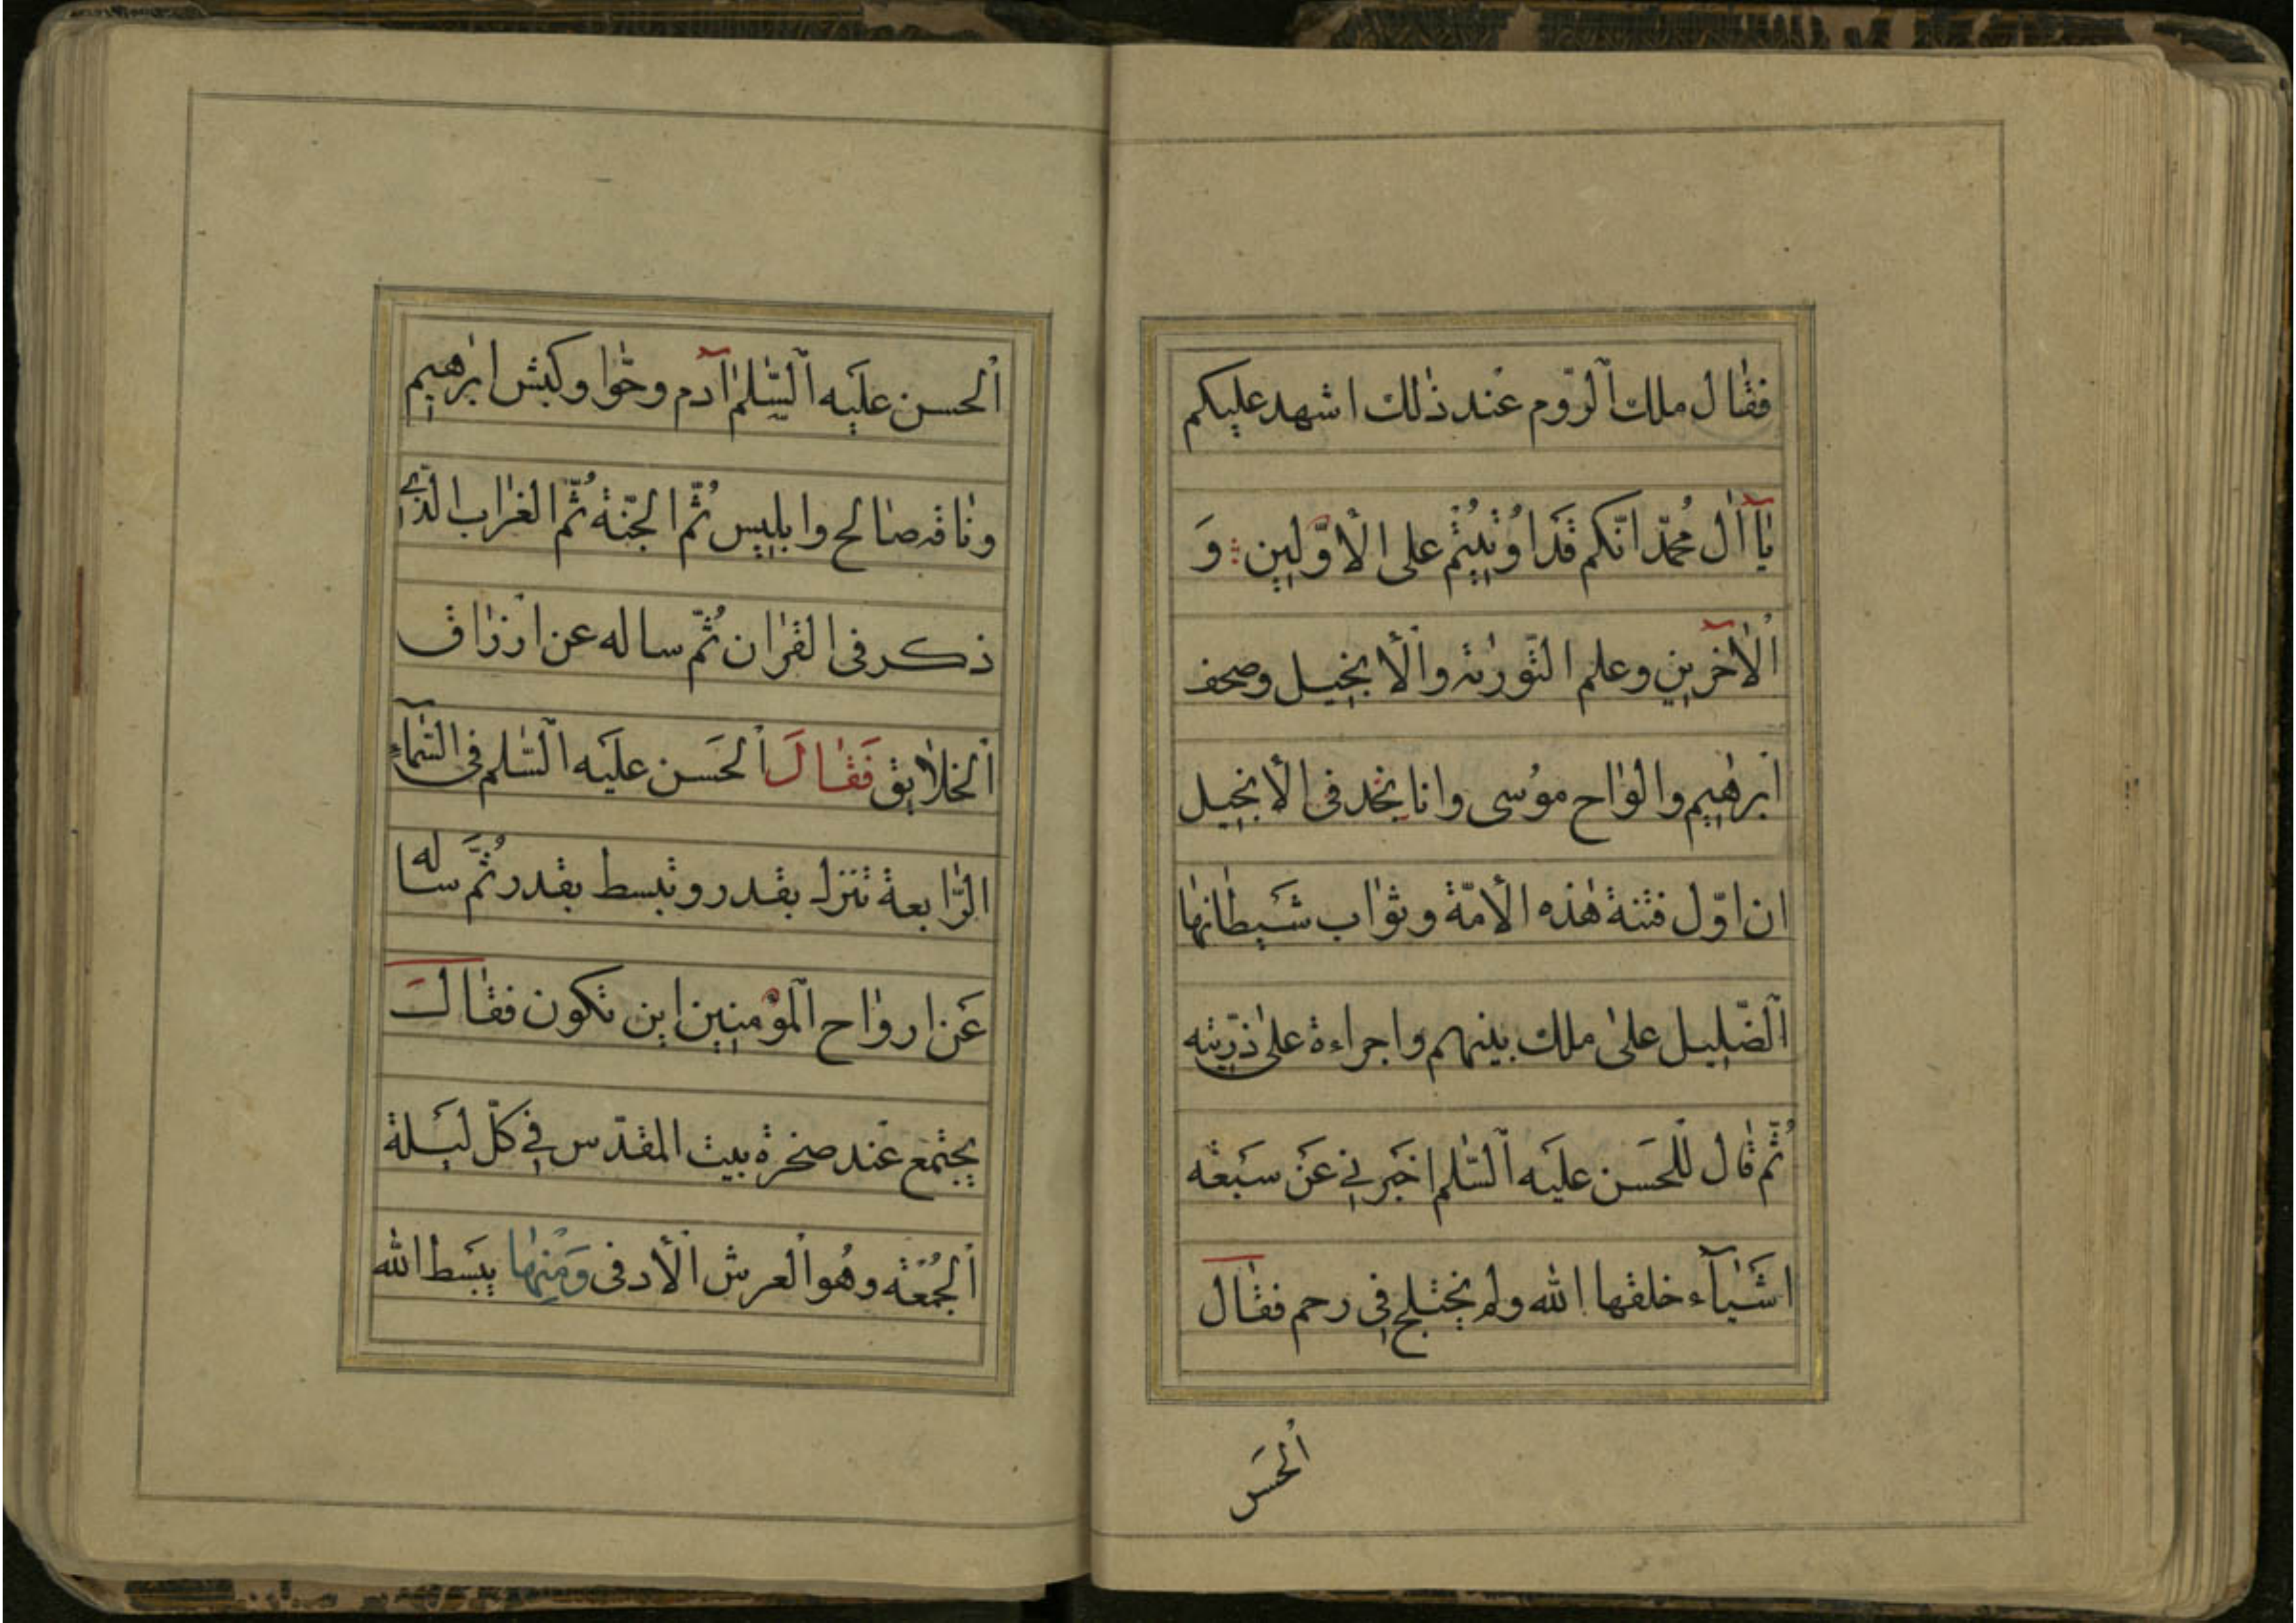 فقٰال ملك الرّوم عند ذٰلك اشهد عليكم
يٰآ اٰل مُحمّد انّكم قَد اوُتيٖتُم على الأوّليٖن وَ
الاٰخريٖن وعلم التّورٰىة والأنجيٖل وصحف
ابرٰهيٖم والوٰاح موُسى وانا نجد فى الأنجيٖل
ان اوّل فتنة هٰذه الأمّة وثوٰاب شَيطٰانهٰا
الضّليٖل علىٰ ملك بينهم واجراءة علىٰ ذرّيٖته
ثُمّ قٰال للحَسن عليَه السّٰلم اخبَرنيٖ عَن سَبعَه
اشيَٰآء خلقها الله ولم يختلج فيٖ رحم فقٰال
الحَسن
الحسن عليَٖه السّٰلم اٰدم وحّوٰا وكبش ابرٰهيٖم
ونٰاقه صٰالح وابليٖس ثُمّ الجنّة ثُمّ الغرٰاب الّذٖى
ذكر فى القرٰان ثُمّ ساله عن ارزٰاق
الخلاٰيق فَقٰالَ الحَسن عليَه السّٰلم فى السّمٰآء
الرّٰابعة تنزل بقدر وتبسط بقدر ثُمَّ ساله
عَن اروٰاح المؤمنيٖن اين تكون فقٰالَ
يجتمع عَند صخرة بيت المقدّس فيٖ كلّ ليَلة
الجُمُعَة وهُو العرش الأدفى وَمِنهٰا يبَسط الله